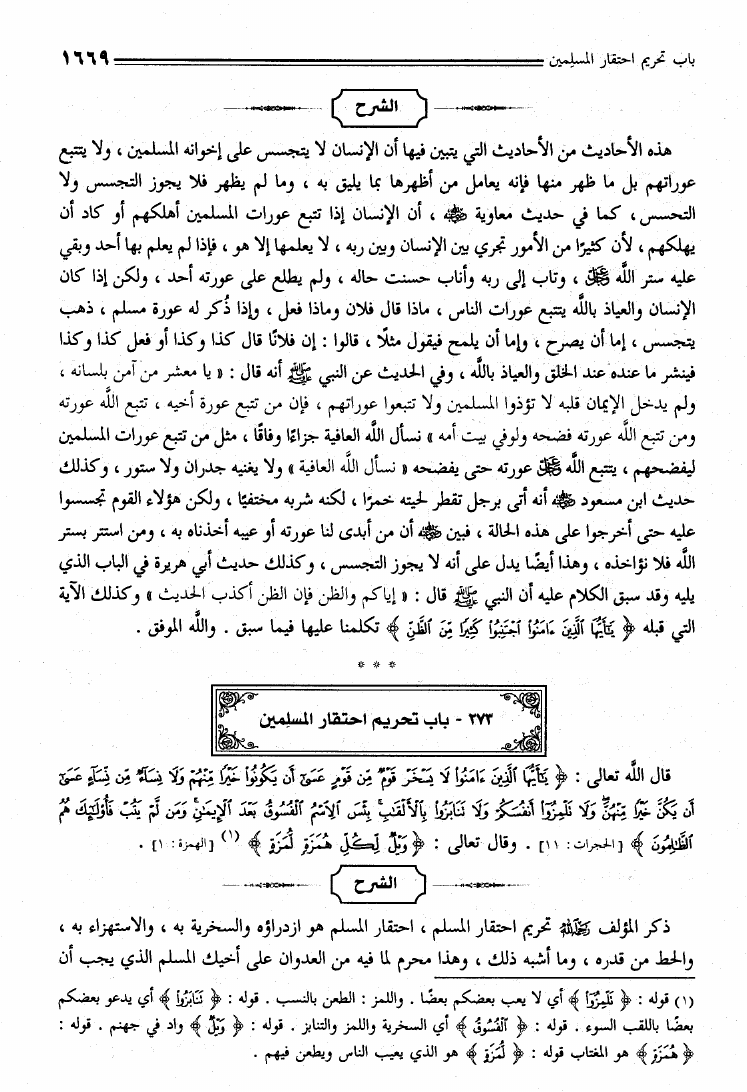 باب تحريم احتقار المسلمين ١٦٦٩
الشرح
هذه الأحاديث من الأحاديث التي يتبين فيها أن الإنسان لا يتجسس على إخوانه المسلمين ، ولا يتتبع
عوراتهم بل ما ظهر منها فإنه يعامل من أظهرها بما يليق به ، وما لم يظهر فلا يجوز التجسس ولا
التحسس ، كما في حديث معاوية رضي الله عنه ، أن الإنسان إذا تتبع عورات المسلمين أهلكهم أو كاد أن
يهلكهم ، لأن كثيرًا من الأمور تجري بين الإنسان وبين ربه ، لا يعلمها إلا هو ، فإذا لم يعلم بها أحد وبقي
عليه ستر اللَّه عز وجل ، وتاب إلى ربه وأناب حسنت حاله ، ولم يطلع على عورته أحد ، ولكن إذا كان
الإنسان والعياذ باللَّه يتتبع عورات الناس ، ماذا قال فلان وماذا فعل ، وإذا ذُكر له عورة مسلم ، ذهب
يتجسس ، إما أن يصرح ، وإما أن يلمح فيقول مثلًا ، قالوا : إن فلانًا قال كذا وكذا أو فعل كذا وكذا
فينشر ما عنده عند الخلق والعياذ باللَّه ، وفي الحديث عن النبي ﷺ أنه قال : « يا معشر من آمن بلسانه ،
ولم يدخل الإيمان قلبه لا تؤذوا المسلمين ولا تتبعوا عوراتهم ، فإن من تتبع عورة أخيه ، تتبع اللَّه عورته
ومن تتبع اللَّه عورته فضحه ولوفي بيت أمه » نسأل اللَّه العافية جزاءًا وفاقًا ، مثل من تتبع عورات المسلمين
ليفضحهم ، يتتبع اللَّه عز وجل عورته حتى يفضحه « نسأل اللَّه العافية » ولا يغنيه جدران ولا ستور ، وكذلك
حديث ابن مسعود رضي الله عنه أنه أتى برجل تقطر لحيته خمرًا ، لكنه شربه مختفيًا ، ولكن هؤلاء القوم تجسسوا
عليه حتى أخرجوا على هذه الحالة ، فبين رضي الله عنه أن من أبدى لنا عورته أو عيبه أخذناه به ، ومن استتر بستر
اللَّه فلا نؤاخذه ، وهذا أيضًا يدل على أنه لا يجوز التجسس ، وكذلك حديث أبي هريرة في الباب الذي
يليه وقد سبق الكلام عليه أن النبي ﷺ قال : « إياكم والظن فإن الظن أكذب الحديث » وكذلك الآية
التي قبله ﴿ يَٰٓأَيُّهَا ٱلَّذِينَ ءَامَنُوا۟ ٱجْتَنِبُوا۟ كَثِيرًا مِّنَ ٱلظَّنِّ ﴾ تكلمنا عليها فيما سبق . واللَّه الموفق .
* * *
٢٧٣ - باب تحريم احتقار المسلمين
قال اللَّه تعالى : ﴿ يَٰٓأَيُّهَا ٱلَّذِينَ ءَامَنُوا۟ لَا يَسْخَرْ قَوْمٌ مِّن قَوْمٍ عَسَىٰٓ أَن يَكُونُوا۟ خَيْرًا مِّنْهُمْ وَلَا نِسَآءٌ مِّن نِّسَآءٍ عَسَىٰٓ
أَن يَكُنَّ خَيْرًا مِّنْهُنَّ ۖ وَلَا تَلْمِزُوٓا۟ أَنفُسَكُمْ وَلَا تَنَابَزُوا۟ بِٱلْأَلْقَٰبِ ۖ بِئْسَ ٱلِٱسْمُ ٱلْفُسُوقُ بَعْدَ ٱلْإِيمَٰنِ ۚ وَمَن لَّمْ يَتُبْ فَأُو۟لَٰٓئِكَ هُمُ
ٱلظَّٰلِمُونَ ﴾ [الحجرات: ١١] . وقال تعالى : ﴿ وَيْلٌ لِّكُلِّ هُمَزَةٍ لُّمَزَةٍ ﴾ (١) [الهمزة: ١] .
الشرح
ذكر المؤلف رحمه الله تحريم احتقار المسلم ، احتقار المسلم هو ازدراؤه والسخرية به ، والاستهزاء به ،
والحط من قدره ، وما أشبه ذلك ، وهذا محرم لما فيه من العدوان على أخيك المسلم الذي يجب أن
(١) قوله : ﴿ تَلْمِزُوٓا۟ ﴾ أي لا يعب بعضكم بعضًا . واللمز : الطعن بالنسب . قوله : ﴿ تَنَابَزُوا۟ ﴾ أي يدعو بعضكم
بعضًا باللقب السوء . قوله : ﴿ ٱلْفُسُوقُ ﴾ أي السخرية واللمز والتنابز . قوله : ﴿ وَيْلٌ ﴾ واد في جهنم . قوله :
﴿ هُمَزَةٍ ﴾ هو المغتاب قوله : ﴿ لُّمَزَةٍ ﴾ هو الذي يعيب الناس ويطعن فيهم .